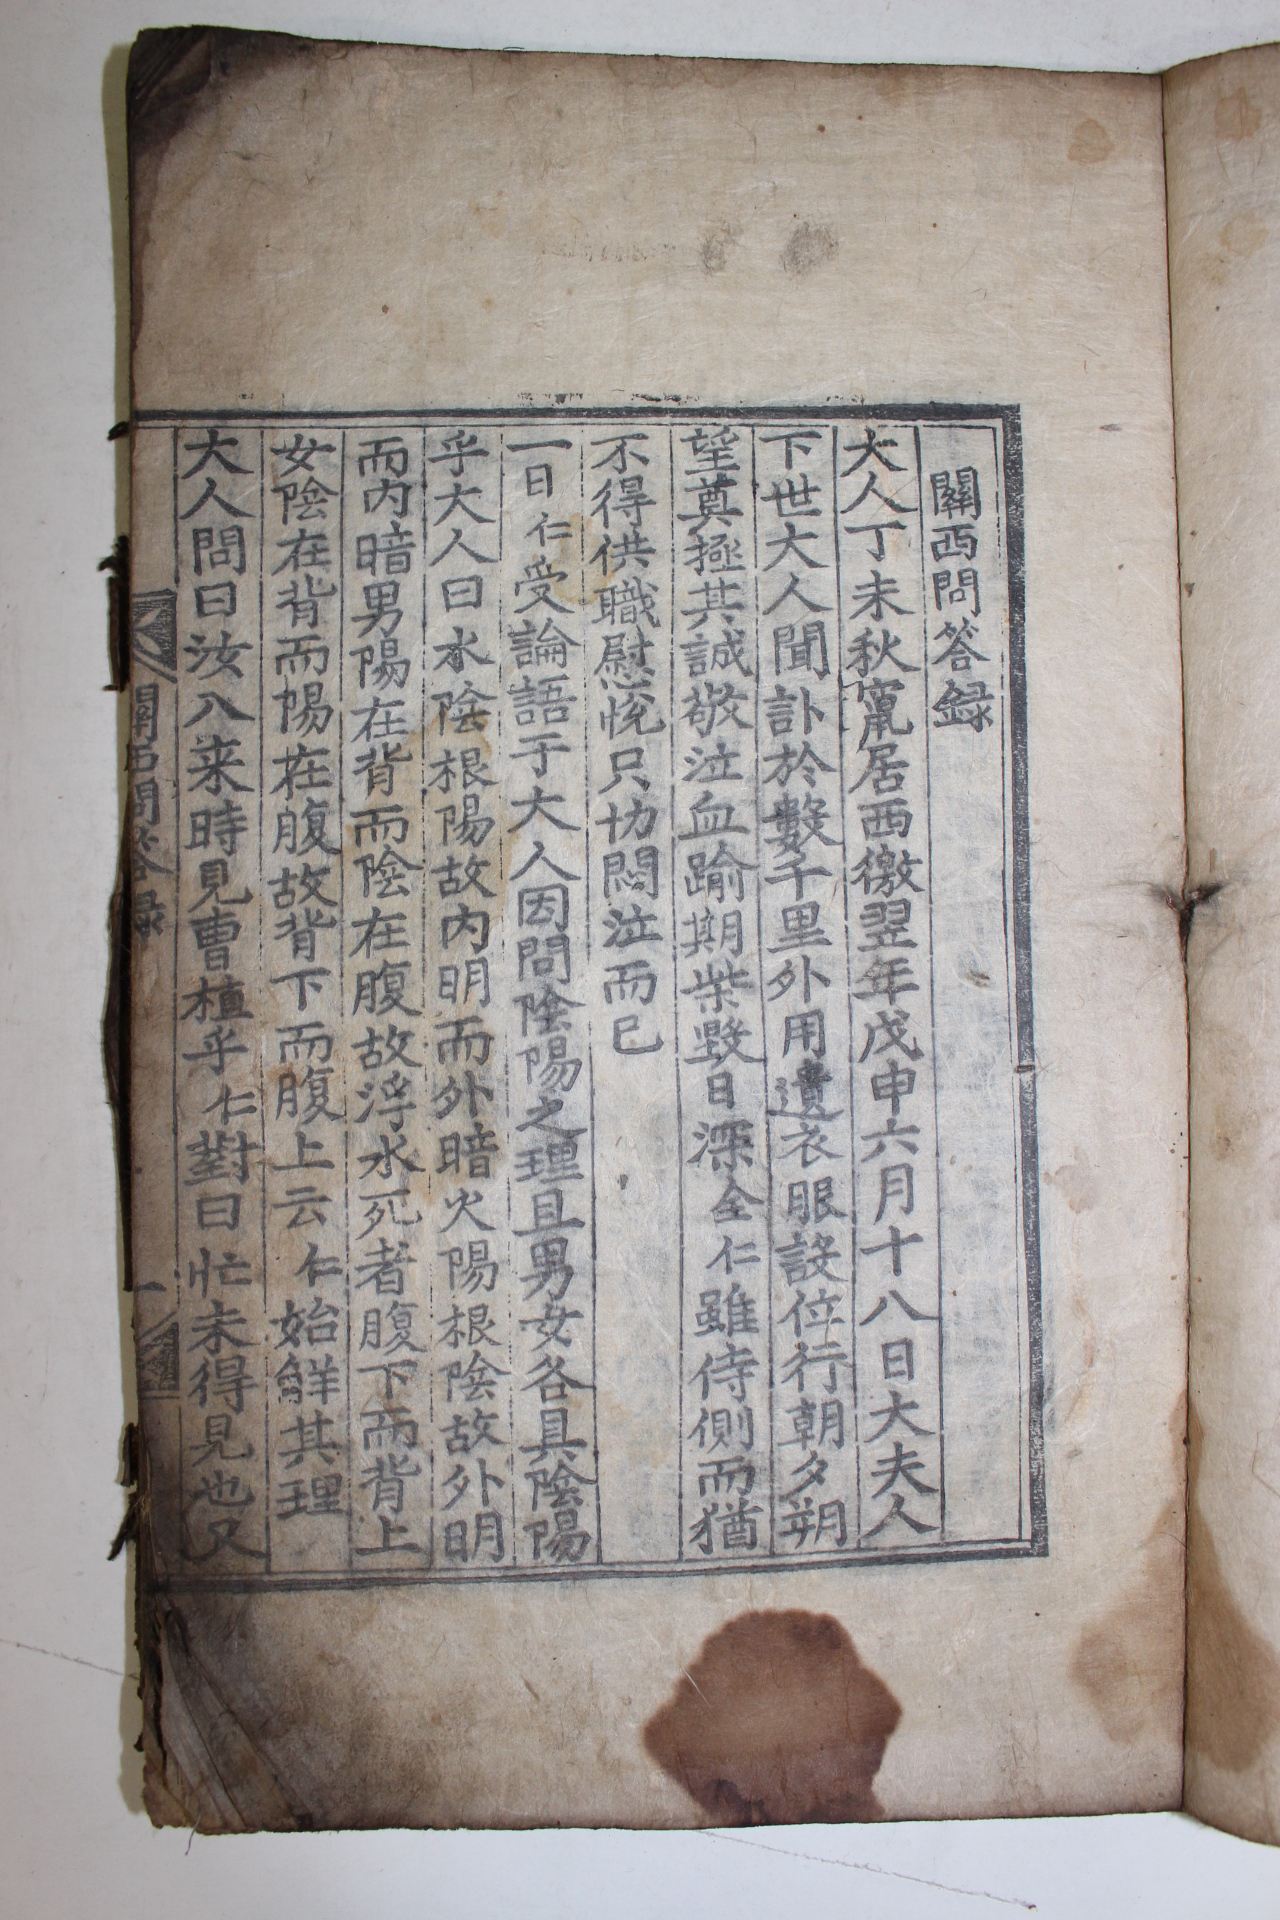 關西問答録
大人丁未秋竄居西徼翌年戊申六月十八日大夫人
下世大人聞訃於數千里外用遺衣服設位行朝夕朔
望奠極其誠敬泣血踰期柴毀日深全仁雖侍側而猶
不得供職慰悅只切悶泣而已
一日仁受論語于大人因問陰陽之理且男女各具陰陽
乎大人曰水陰根陽故内明而外暗火陽根陰故外明
而内暗男陽在背而陰在腹故浮水死者腹下而背上
女陰在背而陽在腹故背下而腹上云仁始觧其理
大人問曰汝入来時見曺植乎仁對曰忙未得見也又
關西問答録
一